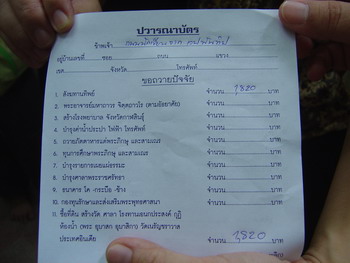 ปวารณาบัตร
ข้าพเจ้า
อยู่บ้านเลขที่ ซอย ถนน แขวง
เขต จังหวัด โทรศัพท์
ขอถวายปัจจัย
1. สังฆทานทิพย์ จำนวน 1,820 บาท
2. พระอาจารย์มหาถาวร จิตฺตถาวโร (ตามอัธยาศัย) จำนวน บาท
3. สร้างโรงพยาบาล จังหวัดกาฬสินธุ์ จำนวน บาท
4. บำรุงค่าน้ำประปา ไฟฟ้า โทรศัพท์ จำนวน บาท
5. ถวายภัตตาหารแด่พระภิกษุ และสามเณร จำนวน บาท
6. ทุนการศึกษาพระภิกษุ และสามเณร จำนวน บาท
7. บำรุงรายการเผยแผ่ธรรมะ จำนวน บาท
8. บำรุงศาลาพระราชศรัทธา จำนวน บาท
9. ธนาคาร โค -กระบือ -ช้าง จำนวน บาท
10. กองทุนรักษาและส่งเสริมพระพุทธศาสนา จำนวน บาท
11 ซื้อที่ดิน สร้างวัด ศาลา โรงทานอเนกประสงค์ กุฏิ
ห้องน้ำ (พระ อุบาสก อุบาสิกา) วัดเนรัญชราวาส
ประเทศอินเดีย จำนวน 1,820 บาท